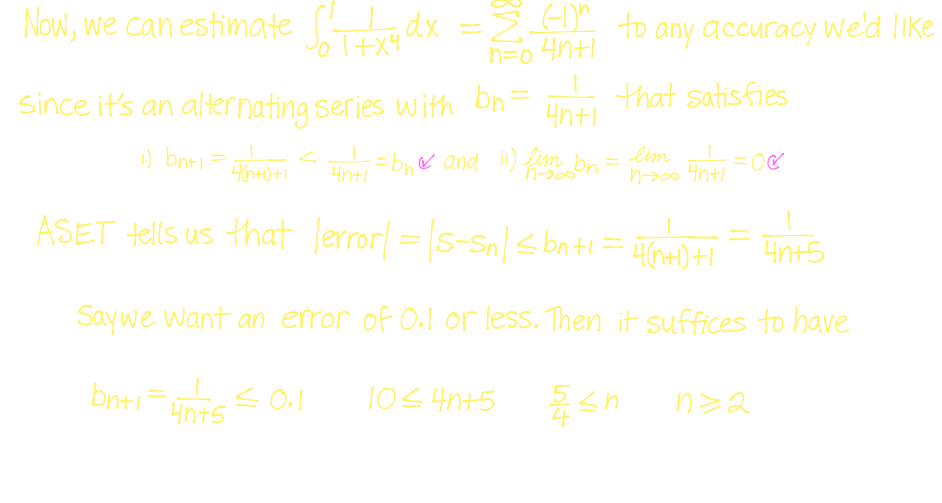 Now, we can estimate ∫₀¹ 1/(1+x⁴) dx = ∑_{n=0}^{∞} (-1)ⁿ/(4n+1) to any accuracy we'd like
since it's an alternating series with bₙ = 1/(4n+1) that satisfies
i) bₙ₊₁ = 1/(4(n+1)+1) < 1/(4n+1) = bₙ ✓ and ii) lim_{n→∞} bₙ = lim_{n→∞} 1/(4n+1) = 0 ✓
ASET tells us that |error| = |s-sₙ| ≤ bₙ₊₁ = 1/(4(n+1)+1) = 1/(4n+5)
Say we want an error of 0.1 or less. Then it suffices to have
bₙ₊₁ = 1/(4n+5) ≤ 0.1 10 ≤ 4n+5 5/4 ≤ n n ≥ 2